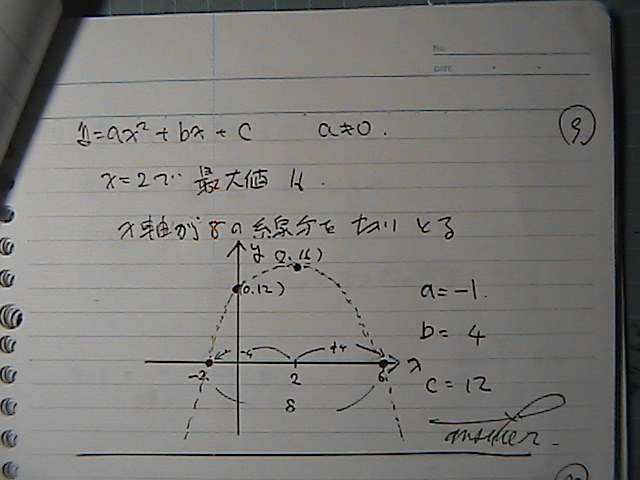 NO.
DATE
y=ax²+bx+c a≠0.
9
x=2で 最大値 16.
x軸から 8の線分を切りとる
y (2.16)
(0.12)
a=-1.
-4 +4 b=4
x
-2 2 6
c=12
8
answer.